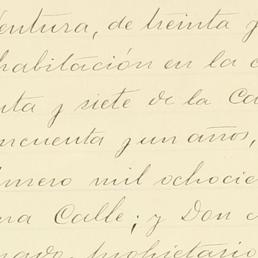 Ventura, de treinta y
habitación en la c
nta y siete de la Ca
incuenta y un años,
número mil ochocie
ma Calle; y Don
propietario